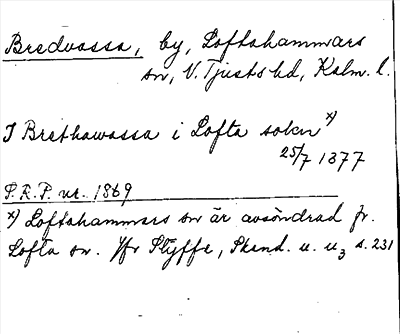 Bredvassa, by, Loftahammars
sn, N. Tjusts hd, Kalm. l.
I Brethawassa i Lofta sokn x)
25/7 1377
S.R.P. nr. 1369
x) Loftahammars sn är avsöndrad fr.
Lofta sn. Jfr Styffe, Skand. u. u3 s. 231